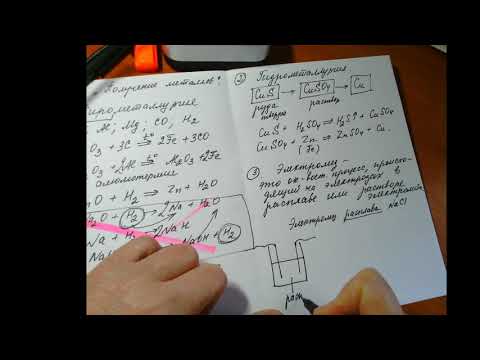 Получение металлов:
пирометаллургия
Al, Mg, CO, H₂
O₃ + 3C ⇒ 2Fe + 3CO
O₃ + 2Al ⇒ Al₂O₃ + 2Fe
алюмотермия
nO + H₂ ⇒ Zn + H₂O
₂O + H₂ → 2Na + H₂O
Na + H₂ → 2NaH
NaOH + H₂
② Гидрометаллургия.
CuS → CuSO₄ → Cu
руда раствор
твердая
CuS + H₂SO₄ ⇒ H₂S↑ + CuSO₄
CuSO₄ + Zn ⇒ ZnSO₄ + Cu.
(Fe)
③ Электролиз –
это ок-вост. процесс, происхо-
дящий на электродах в
расплаве или растворе
электролита
Электролиз расплава NaCl
расп